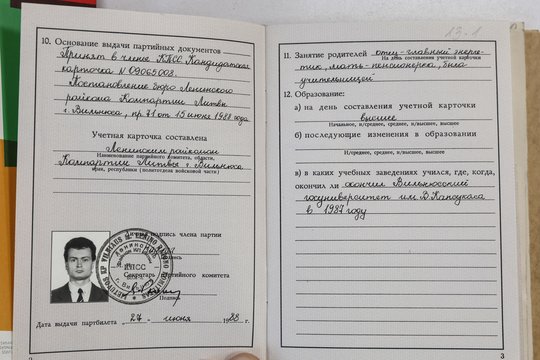 10. Основание выдачи партийных документов
Принят в члены КПСС. Кандидатская
карточка № 09065008.
Постановление бюро Ленинского
райкома Компартии Литвы
г. Вильнюса, пр 71 от 15 июня 1988 года
Учетная карточка составлена
Ленинским райкомом
Наименование партийного комитета, области,
Компартии Литвы г. Вильнюса
края, республики (политотдела войсковой части)
Личная подпись члена партии
Подпись
КПСС
Секретарь партийного комитета
Подпись
Дата выдачи партбилета 27 июня 1988 г.
2
13.1
11. Занятие родителей отец-главный энерге-
На день составления учетной карточки
тик, мать-пенсионерка, была
учительницей
12. Образование:
а) на день составления учетной карточки
высшее
Начальное, н/среднее, среднее, н/высшее, высшее
б) последующие изменения в образовании
Н/среднее, среднее, н/высшее, высшее
в) в каких учебных заведениях учился, где, когда,
окончил ли окончил Вильнюсский
госуниверситет им В. Капсукаса
в 1987 году
3